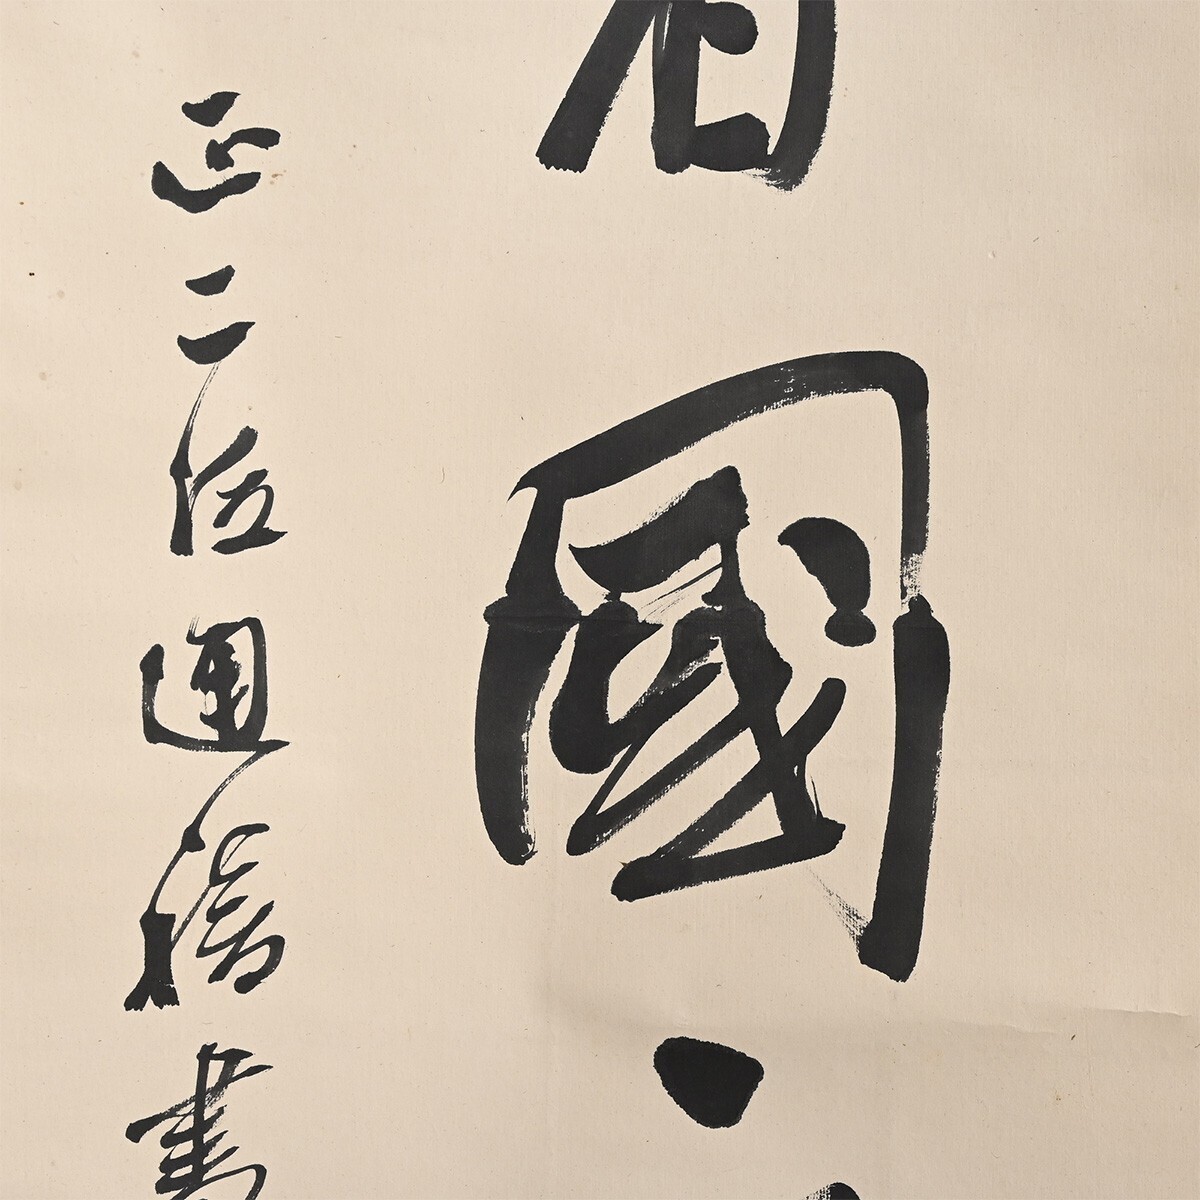 國
正二位通禧書